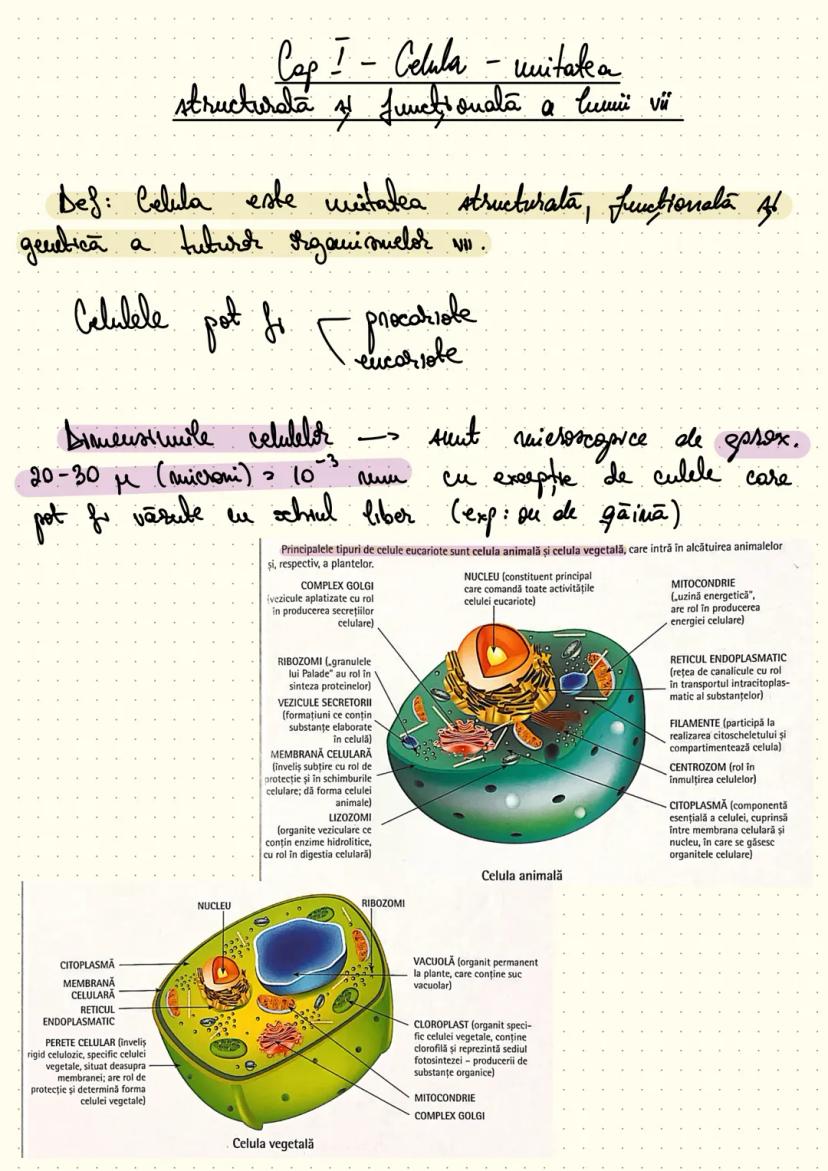 Cap I - Celula - unitatea
structurală și funcțională a lumii vii
Def: Celula este unitatea structurală, funcțională și
genetică a tuturor organismelor vii.
Celulele pot fi
procariote
eucariote
Dimensiunile celulelor —> sunt microscopice de aprox.
20-30 μ (microni) = 10⁻³ mm cu excepție de culele care
pot fi văzute cu ochiul liber (exp: ou de găină)
Principalele tipuri de celule eucariote sunt celula animală și celula vegetală, care intră în alcătuirea animalelor
și, respectiv, a plantelor.
COMPLEX GOLGI
(vezicule aplatizate cu rol
în producerea secrețiilor
celulare)
RIBOZOMI („granulele
lui Palade" au rol în
sinteza proteinelor)
VEZICULE SECRETORII
(formațiuni ce conțin
substanțe elaborate
în celulă)
MEMBRANĂ CELULARĂ
(înveliș subțire cu rol de
protecție și în schimburile
celulare; dă forma celulei
animale)
LIZOZOMI
(organite veziculare ce
conțin enzime hidrolitice,
cu rol în digestia celulară)
NUCLEU (constituent principal
care comandă toate activitățile
celulei eucariote)
MITOCONDRIE
(„uzină energetică",
are rol în producerea
energiei celulare)
RETICUL ENDOPLASMATIC
(rețea de canalicule cu rol
în transportul intracitoplas-
matic al substanțelor)
FILAMENTE (participă la
realizarea citoscheletului și
compartimentează celula)
CENTROZOM (rol în
înmulțirea celulelor)
CITOPLASMĂ (componentă
esențială a celulei, cuprinsă
între membrana celulară și
nucleu, în care se găsesc
organitele celulare)
Celula animală
NUCLEU
RIBOZOMI
CITOPLASMĂ
MEMBRANĂ
CELULARĂ
RETICUL
ENDOPLASMATIC
PERETE CELULAR (înveliș
rigid celulozic, specific celulei
vegetale, situat deasupra
membranei; are rol de
protecție și determină forma
celulei vegetale)
VACUOLĂ (organit permanent
la plante, care conține suc
vacuolar)
CLOROPLAST (organit speci-
fic celulei vegetale, conține
clorofilă și reprezintă sediul
fotosintezei – producerii de
substanțe organice)
MITOCONDRIE
COMPLEX GOLGI
Celula vegetală